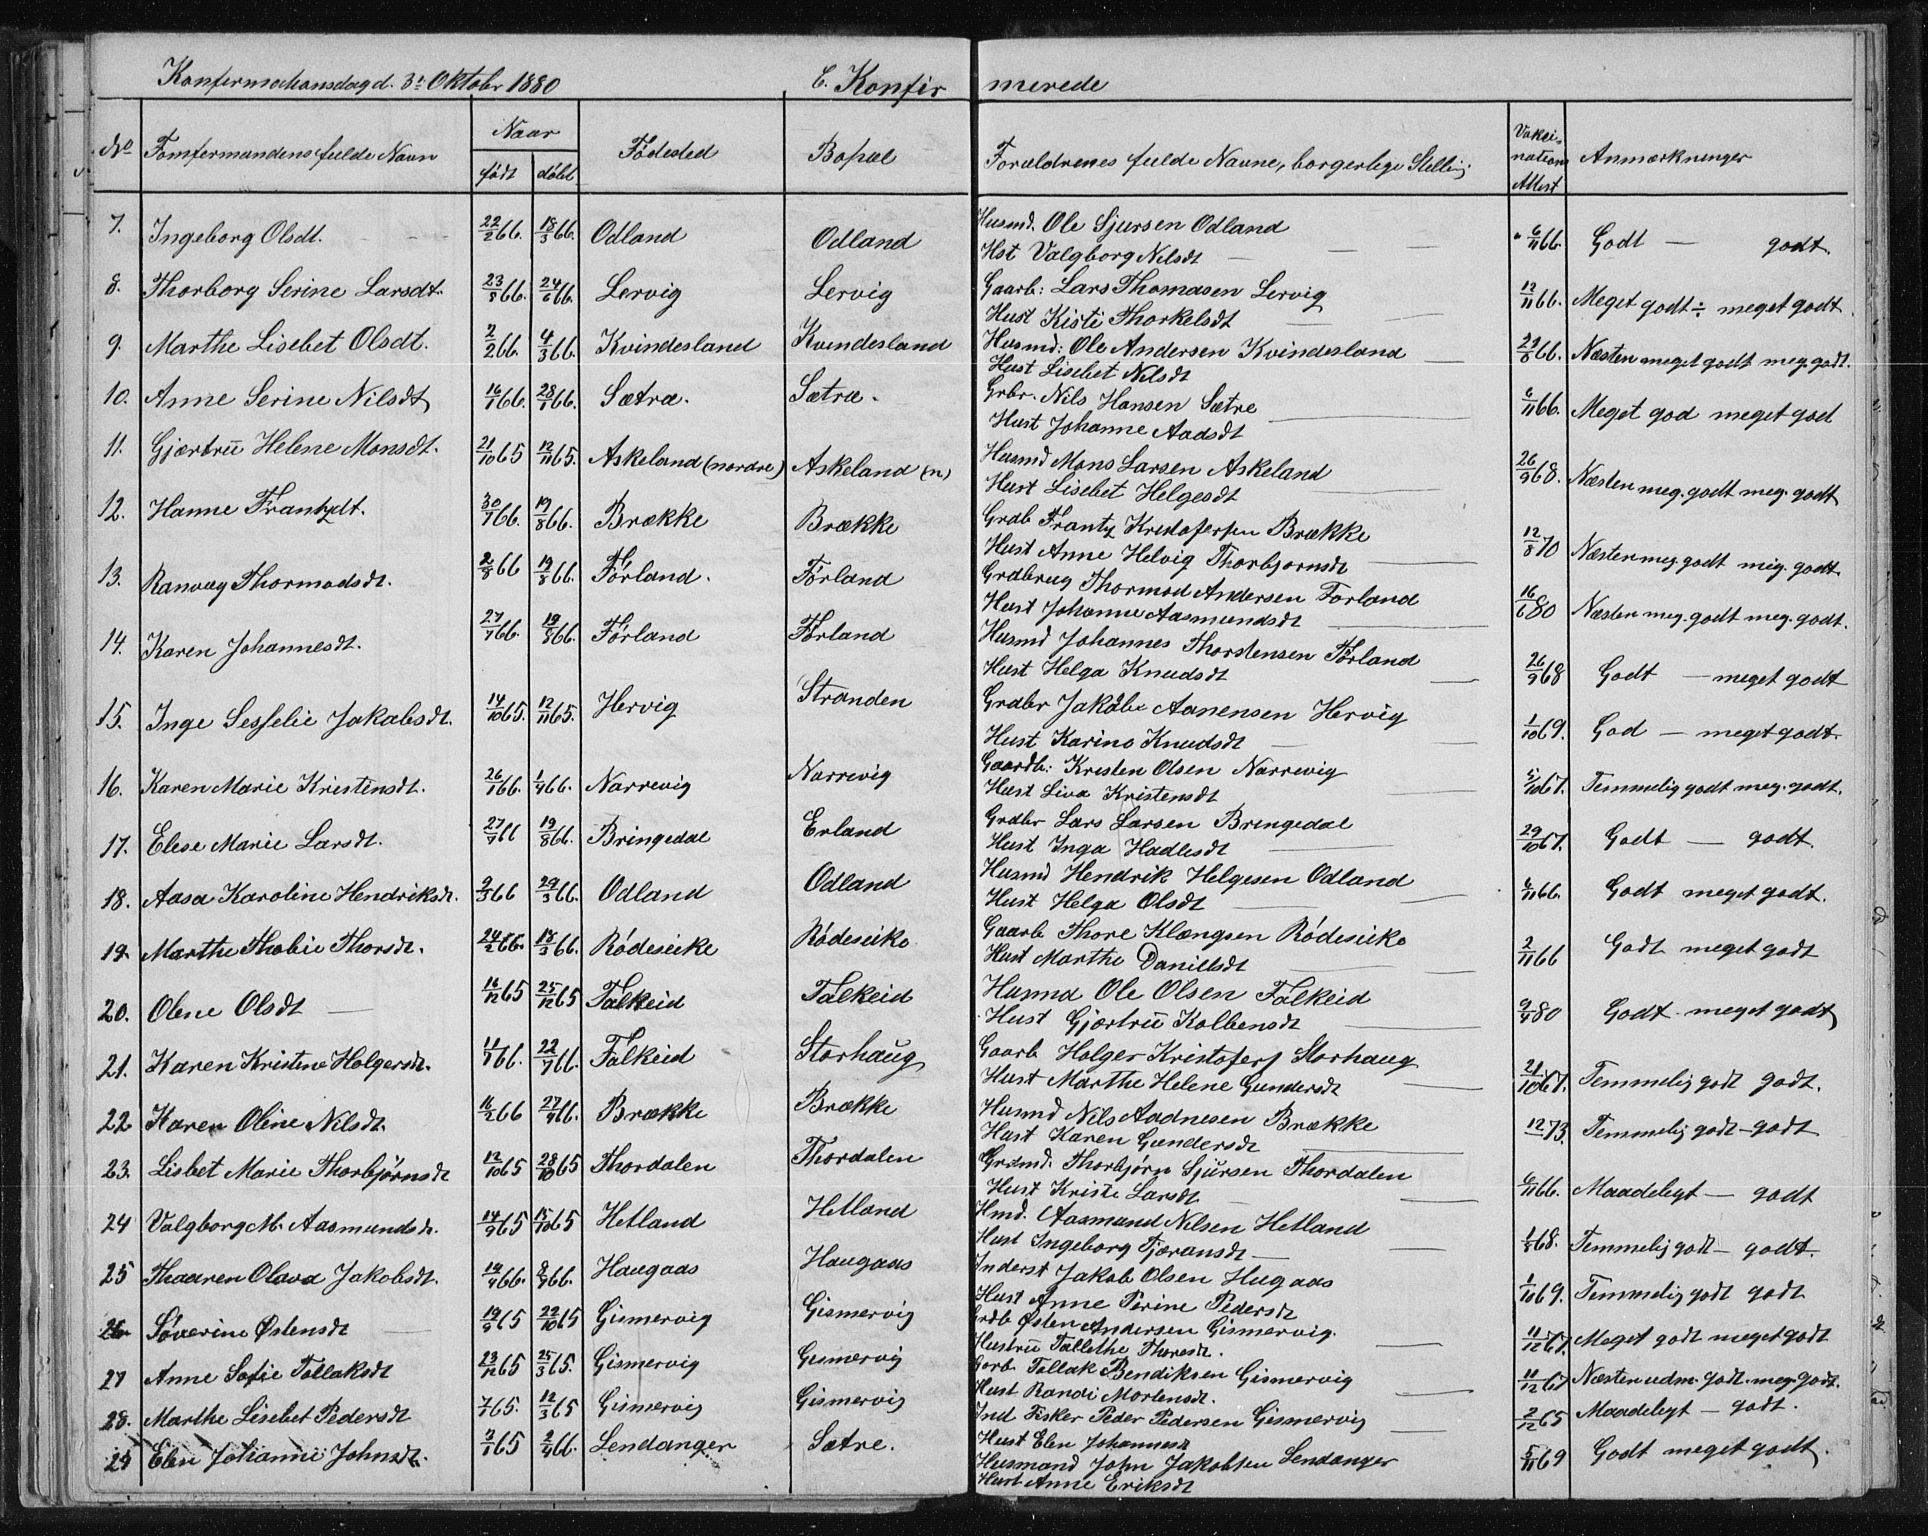 Konfermationsdag d. 3: Oktober 1880 C. Konfir merede
No Naar Vaksi-
Konfermandens fulde Navn født døbt Fødested Bopæl Forældrenes fulde Navne, borgerlige Stelling. nations Attest Anmærkninger
7. Ingeborg Olsdt. 22/2 66. 18/3 66. Odland Odland Husmd. Ole Sjursen Odland 6/11 66. Godt — godt.
Hst Valgborg Nilsdt
8. Thorborg Serine Larsdt. 23/5 66. 24/6 66. Lervig Lervig Gaarb: Lars Thomasen Lervig 12/11 66. Meget godt ÷ meget godt
Hust Kisti Thorkelsdt
9. Marthe Lisebet Olsdt. 2/2 66. 4/3 66. Kvindesland Kvendesland Husmd: Ole Andersen Kvindesland 29/8 66. Næsten meget godt meg. godt.
Hust Lisebet Nilsdt
10. Anne Serine Nilsdt 16/1 66. 28/1 66. Sætræ. Sætræ. Grbr. Nils Hansen Sætre 6/11 66. Meget god meget god
Hust Johanne Aadsdt
11. Gjærtru Helene Monsdt. 21/10 65 12/11 65. Askeland (nordre) Askeland (n) Husmd Mons Larsen Askeland 26/9 68. Næsten meg. godt meg. godt
Hust Lisebet Helgesdt
12. Hanne Frantzdt. 30/7 66. 19/8 66. Brække Brække Grdb Frantz Kristofersen Brække 12/8 70 Næsten meg. godt meg. godt.
Hust Anne Helvig Thorbjornsdt
13. Ranvæg Thormodsdt. 2/8 66 19/8 66. Førland. Førland Grdbrug Thormod Andersen Forland 16/6 80 Næsten meg. godt meg. godt.
Hust Johanne Aasmundsdt
14. Karen Johannesdt. 27/7 66. 19/8 66. Førland Førland Husmd Johannes Thorstensen Førland 26/9 68 Godt — meget godt
Hust Helga Knudsdt
15. Inge Sesselie Jakobsdt. 14/10 65. 12/11 65. Hervig Stranden Grdbr Jakob Aanensen Hervig 1/10 69. God — meget godt.
Hust Karine Knudsdt
16. Karen Marie Kristensdt. 26/1 66. 1/4 66. Narrevig Narrevig Gaardb: Kristen Olsen Narrevig 5/10 67. Temmelig godt meg. godt.
Hust Liva Kristensdt
17. Elese Marie Larsdt. 27/7 66 19/8 66. Bringedal Erland Grdbr Lars Larsen Bringedal 29/10 67. Godt — godt.
Hust Inga Hadlesdt
18. Aasa Karoline Hendriksdt. 9/3 66 29/3 66. Odland Odland Husmd Hendrik Helgesen Odland 6/11 66. Godt meget godt.
Hust Helga Olsdt
19. Marthe Thobie Thorsdt. 24/2 66. 18/3 66. Rødeseike Rødeseike Gaarb Thore Klængsen Rødeseike 2/11 66 Godt meget godt
Hust Marthe Danielsdt
20. Olene Olsdt 16/12 65 25/12 65 Falkeid Falkeid Husmd Ole Olsen Falkeid 9/4 80 Godt meget godt
Hust Gjærtru Kolbensdt
21. Karen Kristine Holgersdt. 11/7 66. 22/7 66. Falkeid Storhaug Gaarb Holger Kristofers Storhaug 21/10 67. Temmelig godt godt.
Hust Marthe Helene Gundersdt
22 Karen Oline Nilsdt. 16/2 66 27/4 66. Brække Brække Husmd Nils Aadnesen Brække 12/12 73. Temmelig godt - godt
Hust Karen Gundersdt
23. Lisbet Marie Thorbjørnsdt 12/10 65 28/10 65 Thordalen Thordalen Grdmd. Thorbjørn Sjursen Thordalen 6/11 66. Maadeligt — godt
Hust Kriste Larsdt
24 Valgborg M. Aasmundsdt. 14/9 65 15/10 65 Hetland Hetland Hmd. Aasmund Nilsen Hetland 1/8 68. Temmelig godt — godt.
Hust Ingeborg Tjæransdt
25 Thaaren Olava Jakobsdt. 14/4 66. Haugaas Haugaas Inderst Jakob Olsen Hugaas 1/10 69. Temmelig godt godt
Hust Anne Perine Pedersdt
26. Søverine Østensdt 19/9 65 22/10 65 Gismervig Gismervig Grdb Østen Andersen Gismervig. 11/12 67. Meget godt meget godt
Hustru Tallethe Thoresdt.
27 Anne Sofie Tollaksdt 23/12 65 25/3 65. Gismervig Gismervig Gorb Tollak Bendiksen Gismervig 11/12 67 Næsten udm. godt. meg. godt.
Hust Randi Mortensdt.
28. Marthe Lisebet Pedersdt 65. 12/3 65 Gismervig Gismervig Ind Fisker Peder Pedersen Gismervig 2/12 65 Maadeligt — godt.
Hust Elen Johannesdt
29 Elen Johanne Johnsdt. 65 2/4 66. Lendanger Sætre. Husmand John Jakobsen Lendanger 5/11 69 Godt meget godt.
Hust Anne Eriksdt